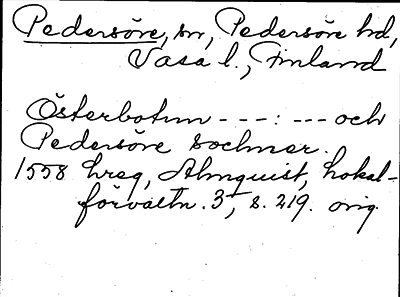 Pedersöre, sn, Pedersöre hd,
Vasa l., Finland
Österbotnn ---: --- och
Pedersöre sochner.
1558 hreg, Almquist, Lokal-
förvaltn. 3, s. 219. orig.